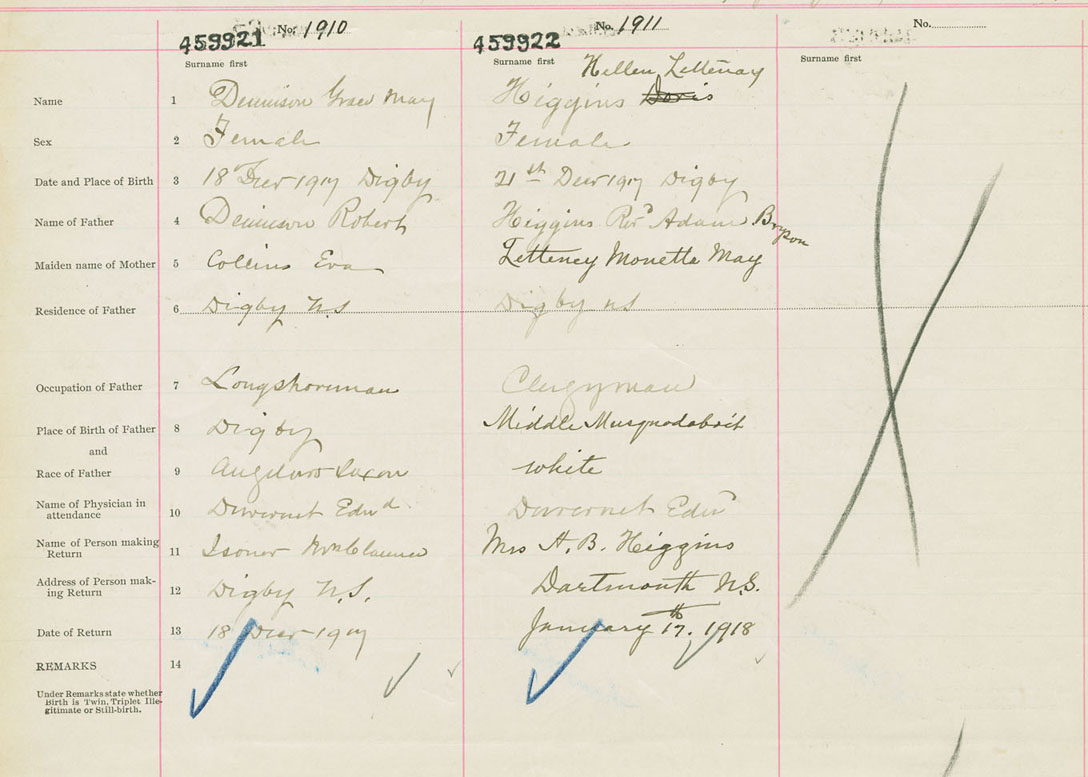 No. 1910 No. 1911 No.
459921 459922
Surname first Surname first Surname first
Hellen Letteney
Name 1 Dennison Grace May Higgins Doris
Sex 2 Female Female
Date and Place of Birth 3 18th Decr 1917 Digby 21st Decr 1917 Digby
Name of Father 4 Dennison Robert Higgins Revd Adam Bryson
Maiden name of Mother 5 Collins Eva Letteney Monetta May
Residence of Father 6 Digby N.S Digby NS
Occupation of Father 7 Longshoreman Clergyman
Place of Birth of Father 8 Digby Middle Musquodoboit
and
Race of Father 9 Anglo Saxon white
Name of Physician in
attendance 10 Duvernet Edwd Duvernet Edwd
Name of Person making
Return 11 Mrs A. B. Higgins
Address of Person mak-
ing Return 12 Digby N.S. Dartmouth N.S.
Date of Return 13 18 Decr 1917 January 17th. 1918
REMARKS 14
Under Remarks state whether
Birth is Twin, Triplet Ille-
gitimate or Still-birth.